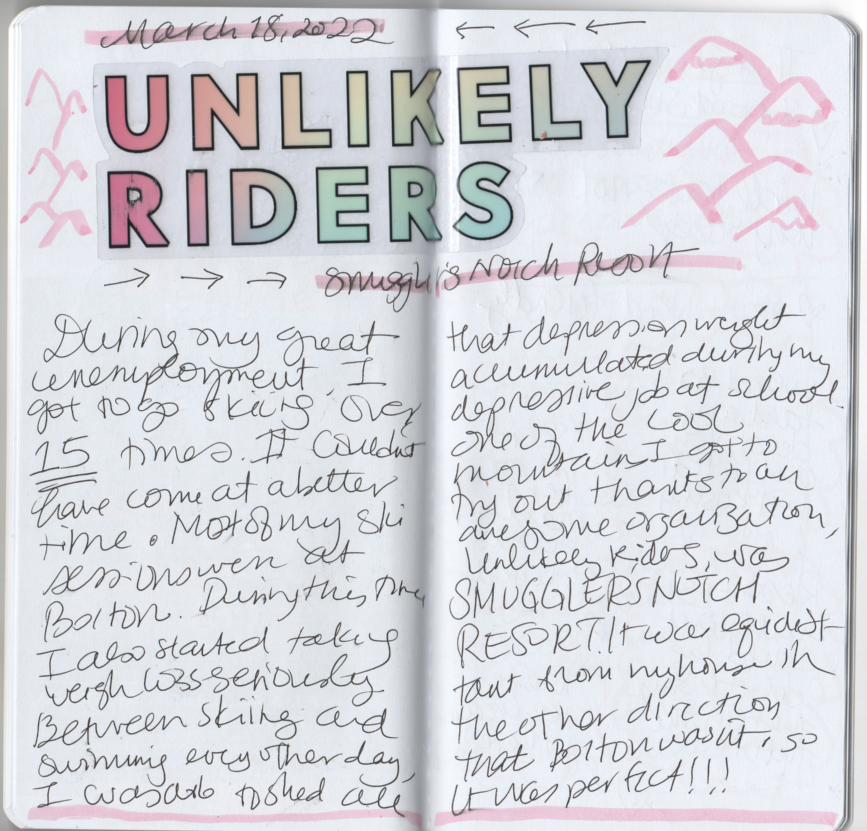 March 18, 2022
UNLIKELY
RIDERS
Smuggler's Notch Resort
During my great
unemployment, I
got to go skiing over
15 times. It couldnt
have come at a better
time. Most of my ski
sessions were at
Bolton. During this time
I also started taking
weigh loss seriously
Between skiing and
swimming every other day,
I was able to shed all
that depression weight
accumulated during my
depressive job at school.
one of the cool
mountains I got to
try out thanks to an
awesome organization,
Unlikely Riders, was
SMUGGLERS NOTCH
RESORT! It was equidist
tant from my house in
the other direction
that Bolton wasnt, so
it was perfect!!!